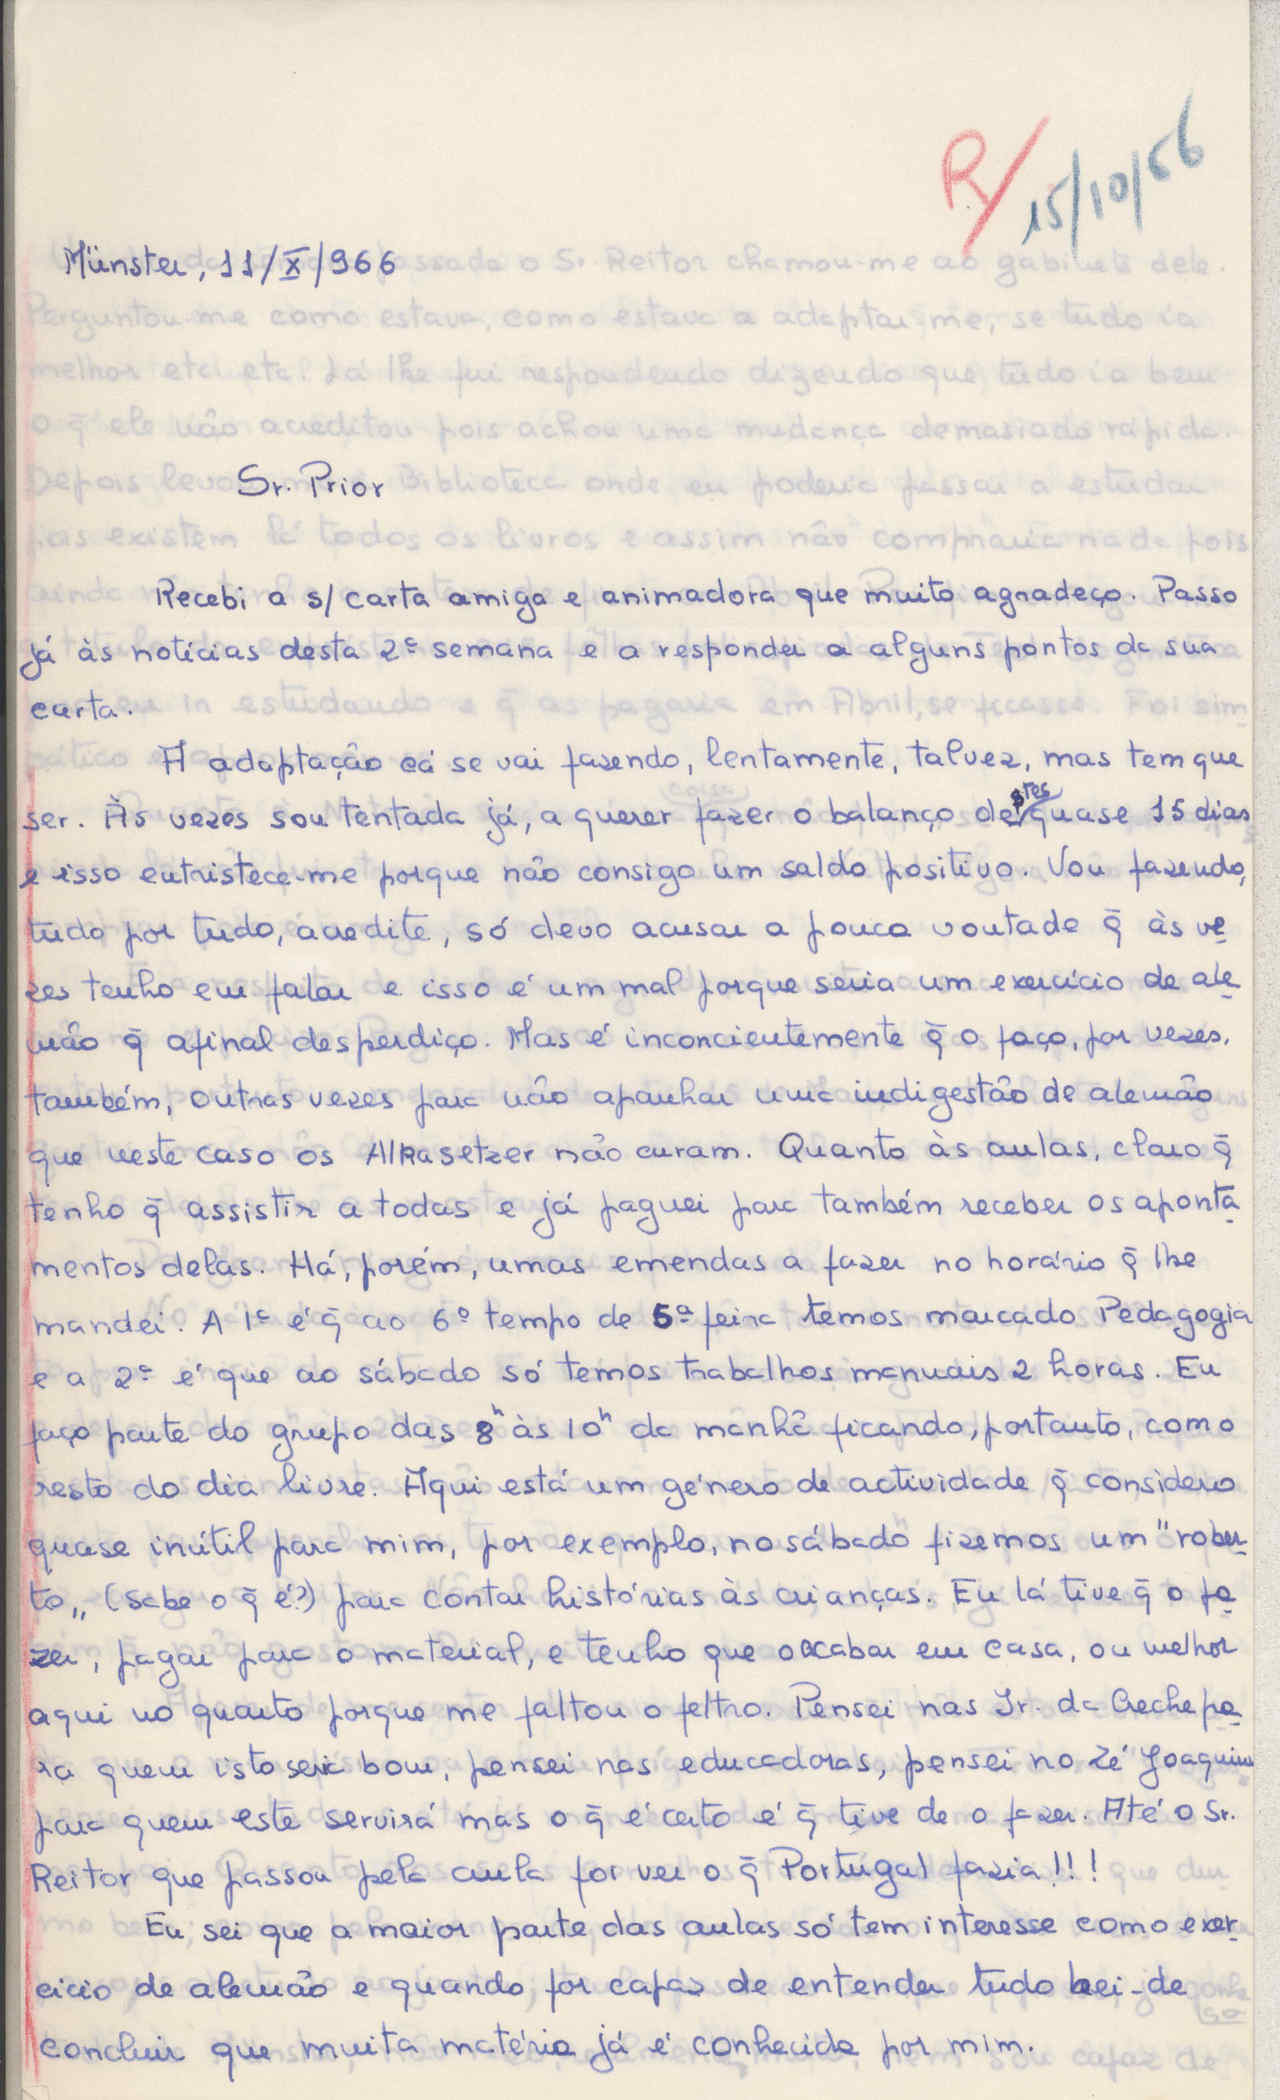 R/ 15/10/66
Münster, 11/X/966
Sr. Prior
Recebi a s/ carta amiga e animadora que muito agradeço. Passo
já às notícias desta 2ª semana e a responder a alguns pontos da sua
carta.
A adaptação cá se vai fazendo, lentamente, talvez, mas tem que
ser. Às vezes sou tentada já, a querer fazer o balanço destes quase 15 dias
e isso entristece-me porque não consigo um saldo positivo. Vou fazendo,
tudo por tudo, acredite, só devo acusar a pouca vontade q̄ às ve
zes tenho em falar e isso é um mal porque seria um exercício de ale
mão q̄ afinal desperdiço. Mas é inconcientemente q̄ o faço, por vezes,
também, outras vezes para não apanhar uma indigestão de alemão
que neste caso os Alkasetzer não curam. Quanto às aulas, claro q̄
tenho q̄ assistir a todas e já paguei para também receber os aponta
mentos delas. Há, porém, umas emendas a fazer no horário q̄ lhe
mandei. A 1ª é q̄ ao 6º tempo de 5ª feira temos marcado Pedagogia
e a 2ª é que ao sábado só temos trabalhos manuais 2 horas. Eu
faço parte do grupo das 8h às 10h da manhã ficando, portanto, com o
resto do dia livre. Aqui está um género de actividade q̄ considero
quase inútil para mim, por exemplo, no sábado fizemos um "rober
to„ (sabe o q̄ é?) para contar histórias às crianças. Eu lá tive q̄ o fa
zer, pagar para o material, e tenho que o acabar em casa, ou melhor
aqui no quarto porque me faltou o feltro. Pensei nas Ir. da Creche pa
ra quem isto seria bom, pensei nas educadoras, pensei no Zé Joaquim
para quem este servirá mas o q̄ é certo é q̄ tive de o fazer. Até o Sr.
Reitor que passou pela aula foi ver o q̄ Portugal fazia!!!
Eu sei que a maior parte das aulas só tem interesse como exer
cicio de alemão e quando for capaz de entender tudo hei-de
concluir que muita matéria já é conhecida por mim.